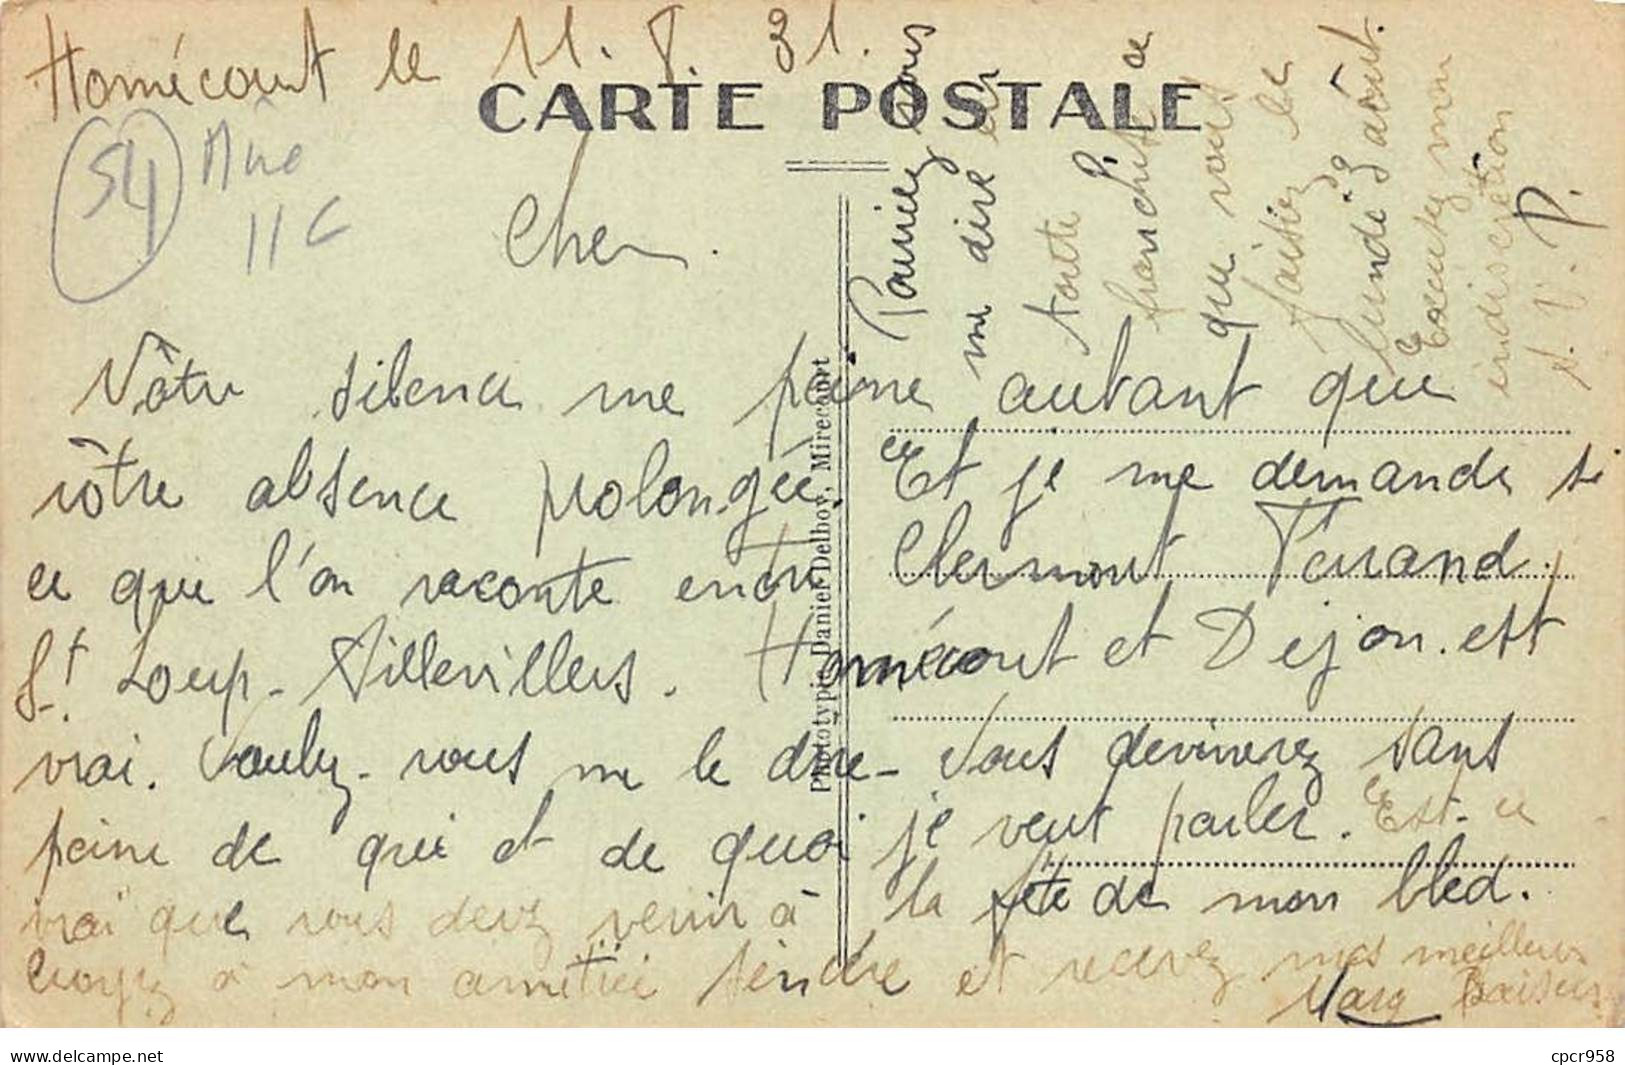 Homécourt le 11. 8. 31.
CARTE POSTALE
54
11 C
Cher .
Vôtre silence me peine autant que
vôtre absence prolongée. Et je me demande si
ce que l'on raconte entre Clermont Ferrand,
St. Loup - Aillevillers. Homécourt et Dijon. est
vrai. Voulez-vous me le dire - Vous devinerez sans
peine de qui et de quoi je veut parler. Est-ce
vrai que vous devez venir à la fête de mon bled.
Croyez à mon amitiée tendre et recevez mes meilleurs
Baisers
Pouriez vous
me dire en
toute
franchise ce
que vous
faisiez le
lundi 3 août.
Excusez mon
indiscrétion
S. V. P.
Phototypie Daniel Delboy, Mirecourt
delcampe.net
cpcr958